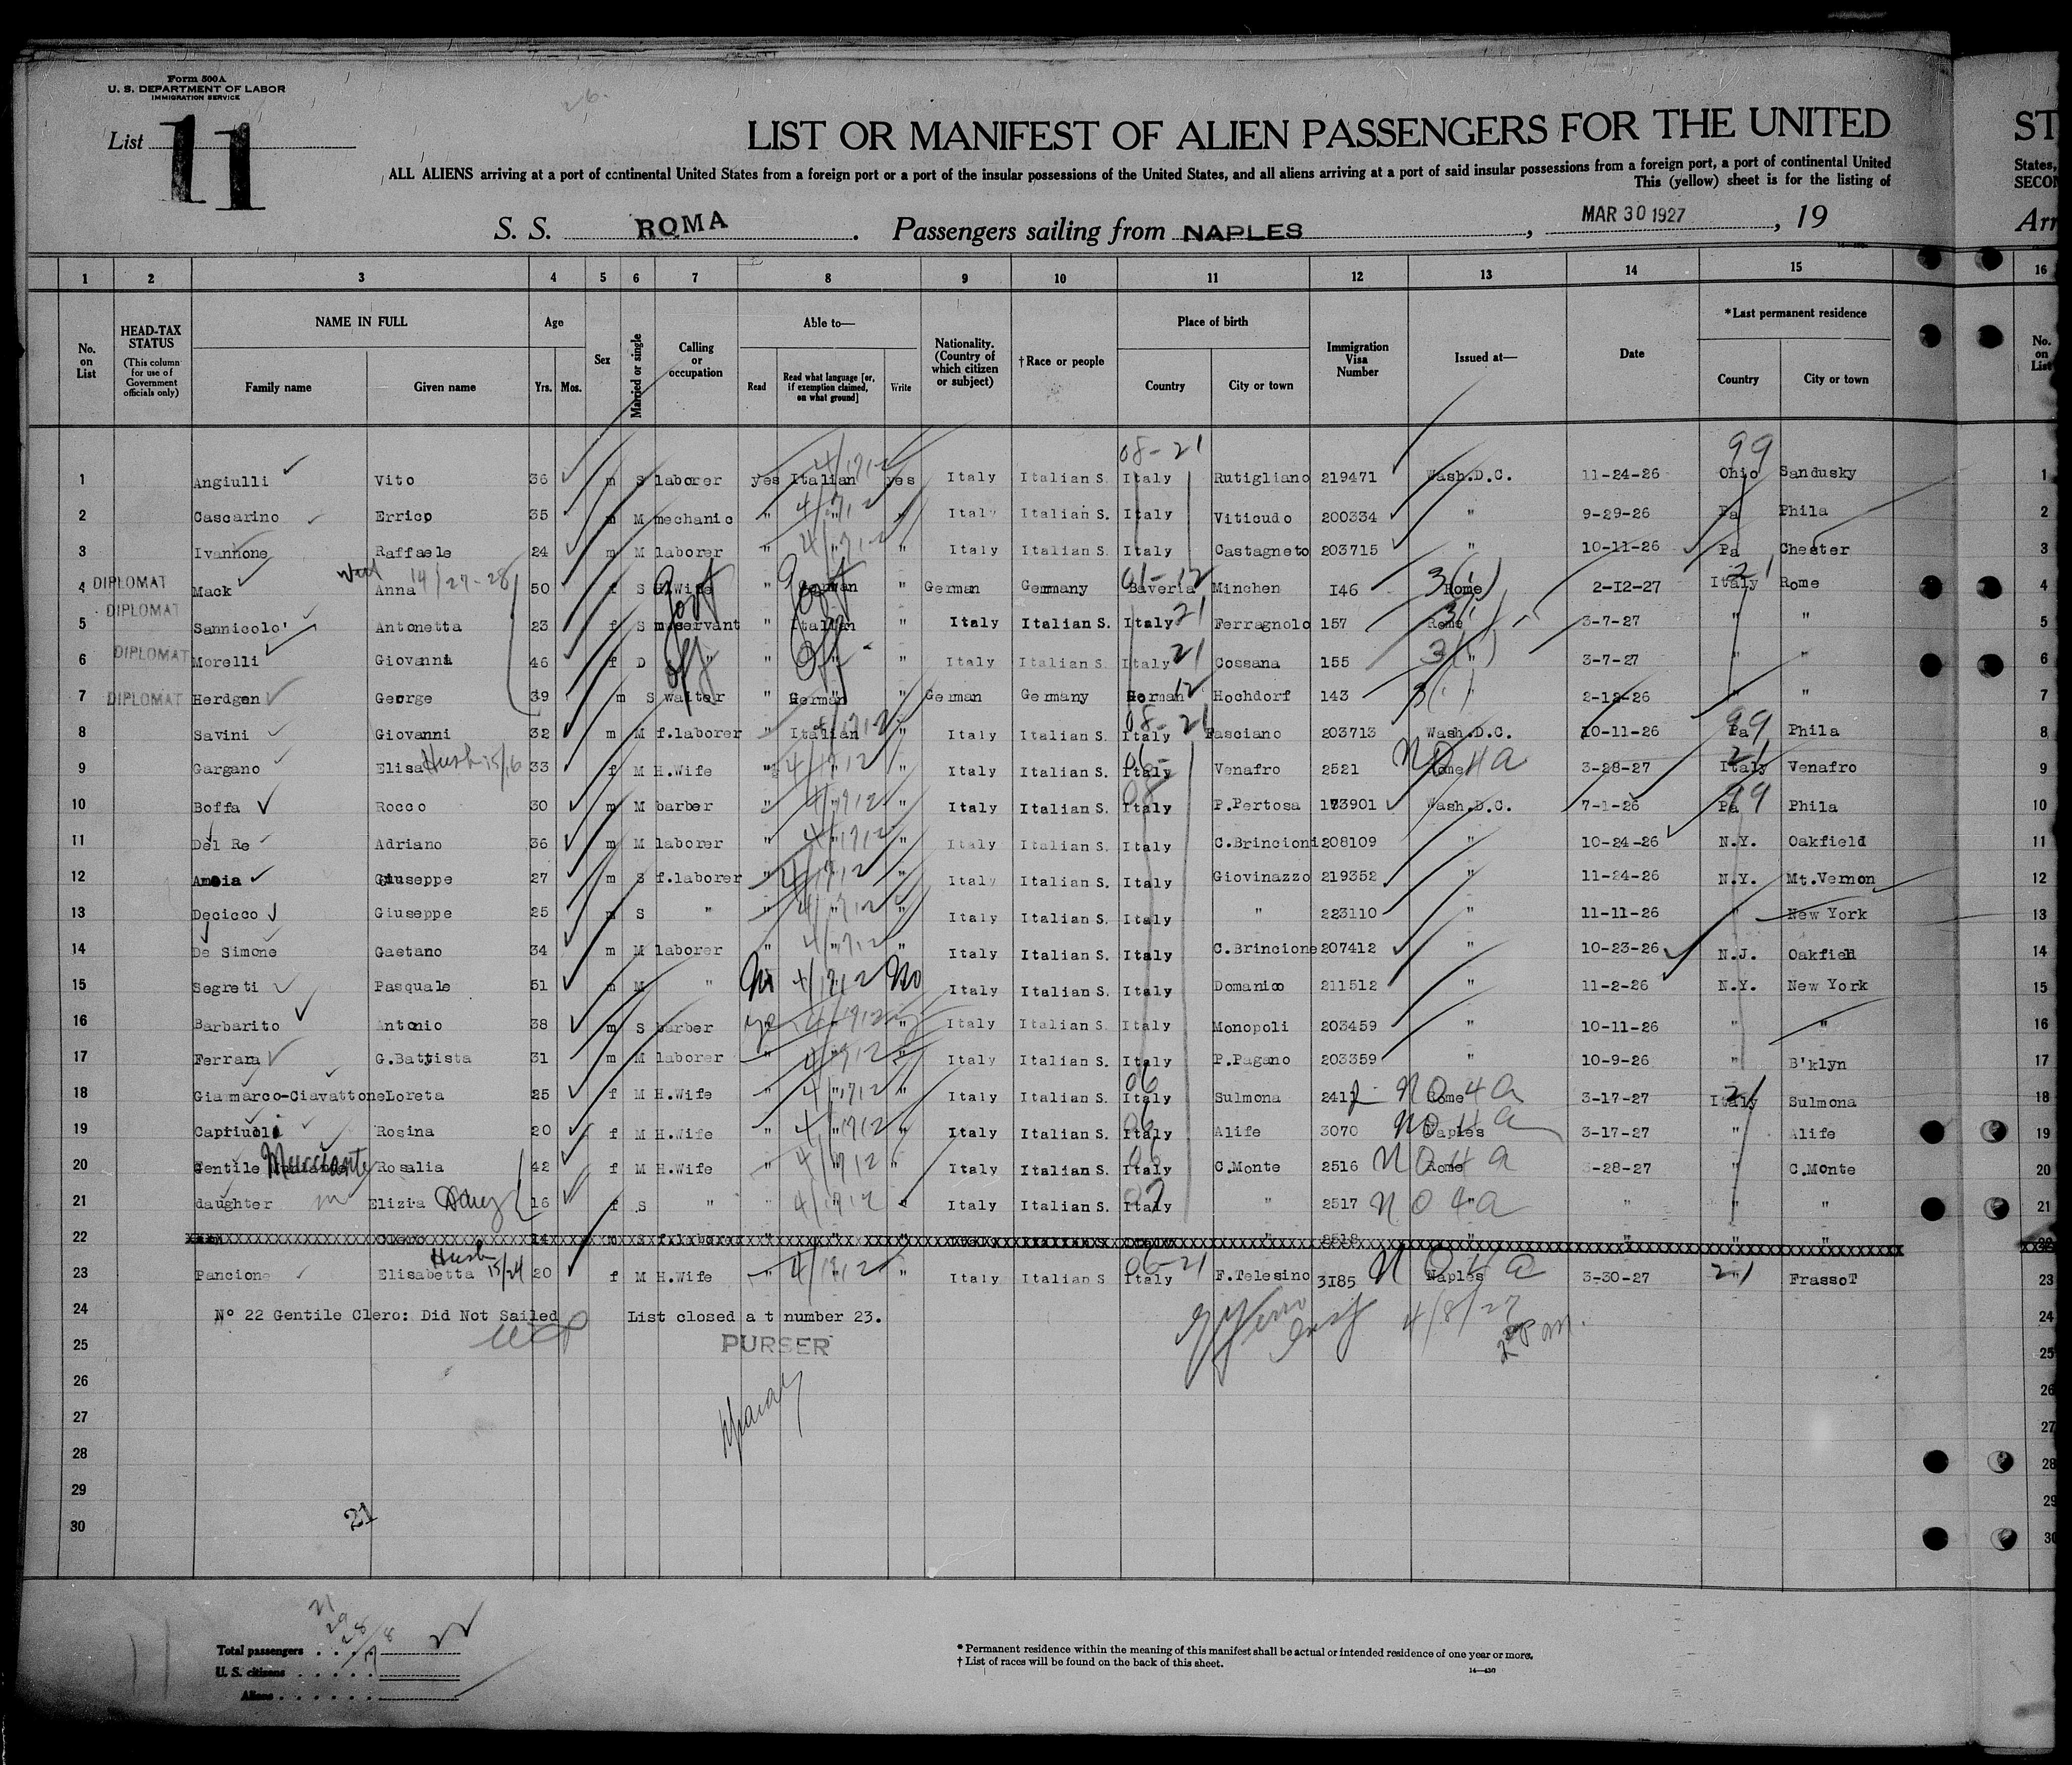 Form 500A
U. S. DEPARTMENT OF LABOR
IMMIGRATION SERVICE
List 11
LIST OR MANIFEST OF ALIEN PASSENGERS FOR THE UNITED
ST
ALL ALIENS arriving at a port of continental United States from a foreign port or a port of the insular possessions of the United States, and all aliens arriving at a port of said insular possessions from a foreign port, a port of continental United
States,
This (yellow) sheet is for the listing of
SECON
S. S. ROMA . Passengers sailing from NAPLES , MAR 30 1927 , 19
Arr
1 2 3 4 5 6 7 8 9 10 11 12 13 14 15 16
No. on List
HEAD-TAX STATUS (This column for use of Government officials only)
NAME IN FULL Family name Given name
Age Yrs. Mos.
Sex
Married or single
Calling or occupation
Able to— Read Read what language [or, if exemption claimed, on what ground] Write
Nationality. (Country of which citizen or subject)
†Race or people
Place of birth Country City or town
Immigration Visa Number
Issued at—
Date
*Last permanent residence Country City or town
No. on List
08-21 99
1 Angiulli Vito 36 m S laborer yes Italian yes Italy Italian S. Italy Rutigliano 219471 Wash.D.C. 11-24-26 Ohio Sandusky 1
2 Cascarino Errico 35 m M mechanic " " " Italy Italian S. Italy Viticudo 200334 " 9-29-26 Pa Phila 2
3 Ivannone Raffaele 24 m M laborer " " " Italy Italian S. Italy Castagneto 203715 " 10-11-26 Pa Chester 3
DIPLOMAT 4 Mack Anna 14/27-28 50 f S H.Wife " German " German Germany Baveria Minchen 146 Rome 2-12-27 Italy Rome 4
DIPLOMAT 5 Sannicolo' Antonetta 23 f S m.servant " Italian " Italy Italian S. Italy Ferragnolo 157 Rome 3-7-27 " " 5
DIPLOMAT 6 Morelli Giovanna 46 f D " " " " Italy Italian S. Italy Cossana 155 " 3-7-27 " " 6
DIPLOMAT 7 Herdgen George 39 m S waiter " German " German Germany German Hochdorf 143 2-12-26 " " 7
8 Savini Giovanni 32 m M f.laborer " Italian " Italy Italian S. Italy Fasciano 203713 Wash.D.C. 10-11-26 Pa Phila 8
9 Gargano Elisa Hush 15/16 33 f M H.Wife " " " Italy Italian S. Italy Venafro 2521 Rome 3-28-27 Italy Venafro 9
10 Boffa Rocco 30 m M barber " " " Italy Italian S. Italy P.Pertosa 173901 Wash.D.C. 7-1-26 Pa Phila 10
11 Del Re Adriano 36 m M laborer " " " Italy Italian S. Italy C.Brincioni 208109 " 10-24-26 N.Y. Oakfield 11
12 Giuseppe 27 m S f.laborer " " " Italy Italian S. Italy Giovinazzo 219352 " 11-24-26 N.Y. Mt.Vernon 12
13 Decicco Giuseppe 25 m S " " " " Italy Italian S. Italy " 223110 " 11-11-26 " New York 13
14 De Simone Gaetano 34 m M laborer " " " Italy Italian S. Italy C.Brincione 207412 " 10-23-26 N.J. Oakfield 14
15 Segreti Pasquale 51 m M " No 4/1912 No Italy Italian S. Italy Domanico 211512 " 11-2-26 N.Y. New York 15
16 Barbarito Antonio 38 m S barber " " " Italy Italian S. Italy Monopoli 203459 " 10-11-26 " " 16
17 Ferrara G.Battista 31 m M laborer " " " Italy Italian S. Italy P.Pagano 203359 " 10-9-26 " B'klyn 17
18 Giammarco-Ciavattone Loreta 25 f M H.Wife " " " Italy Italian S. Italy Sulmona 2411 Rome 3-17-27 Italy Sulmona 18
19 Capriuoli Rosina 20 f M H.Wife " " " Italy Italian S. Italy Alife 3070 Naples 3-17-27 " Alife 19
20 Gentile Mucciante Rosalia 42 f M H.Wife " " " Italy Italian S. Italy C.Monte 2516 Rome 3-28-27 " C.Monte 20
21 daughter Elizia 16 f S " " " " Italy Italian S. Italy " 2517 " " " " 21
22 Clero 14 m S f.laborer 2518 " " " " 22
23 Pancione Elisabetta Hush 15/24 20 f M H.Wife " " " Italy Italian S Italy F.Telesino 3185 Naples 3-30-27 " FrassoT 23
24 Nº 22 Gentile Clero: Did Not Sailed List closed a t number 23. 4/8/27 24
25 PURSER 25
26 26
27 27
28 28
29 29
30 21 30
Total passengers 22
U. S. citizens
Aliens
* Permanent residence within the meaning of this manifest shall be actual or intended residence of one year or more.
† List of races will be found on the back of this sheet.
14—430